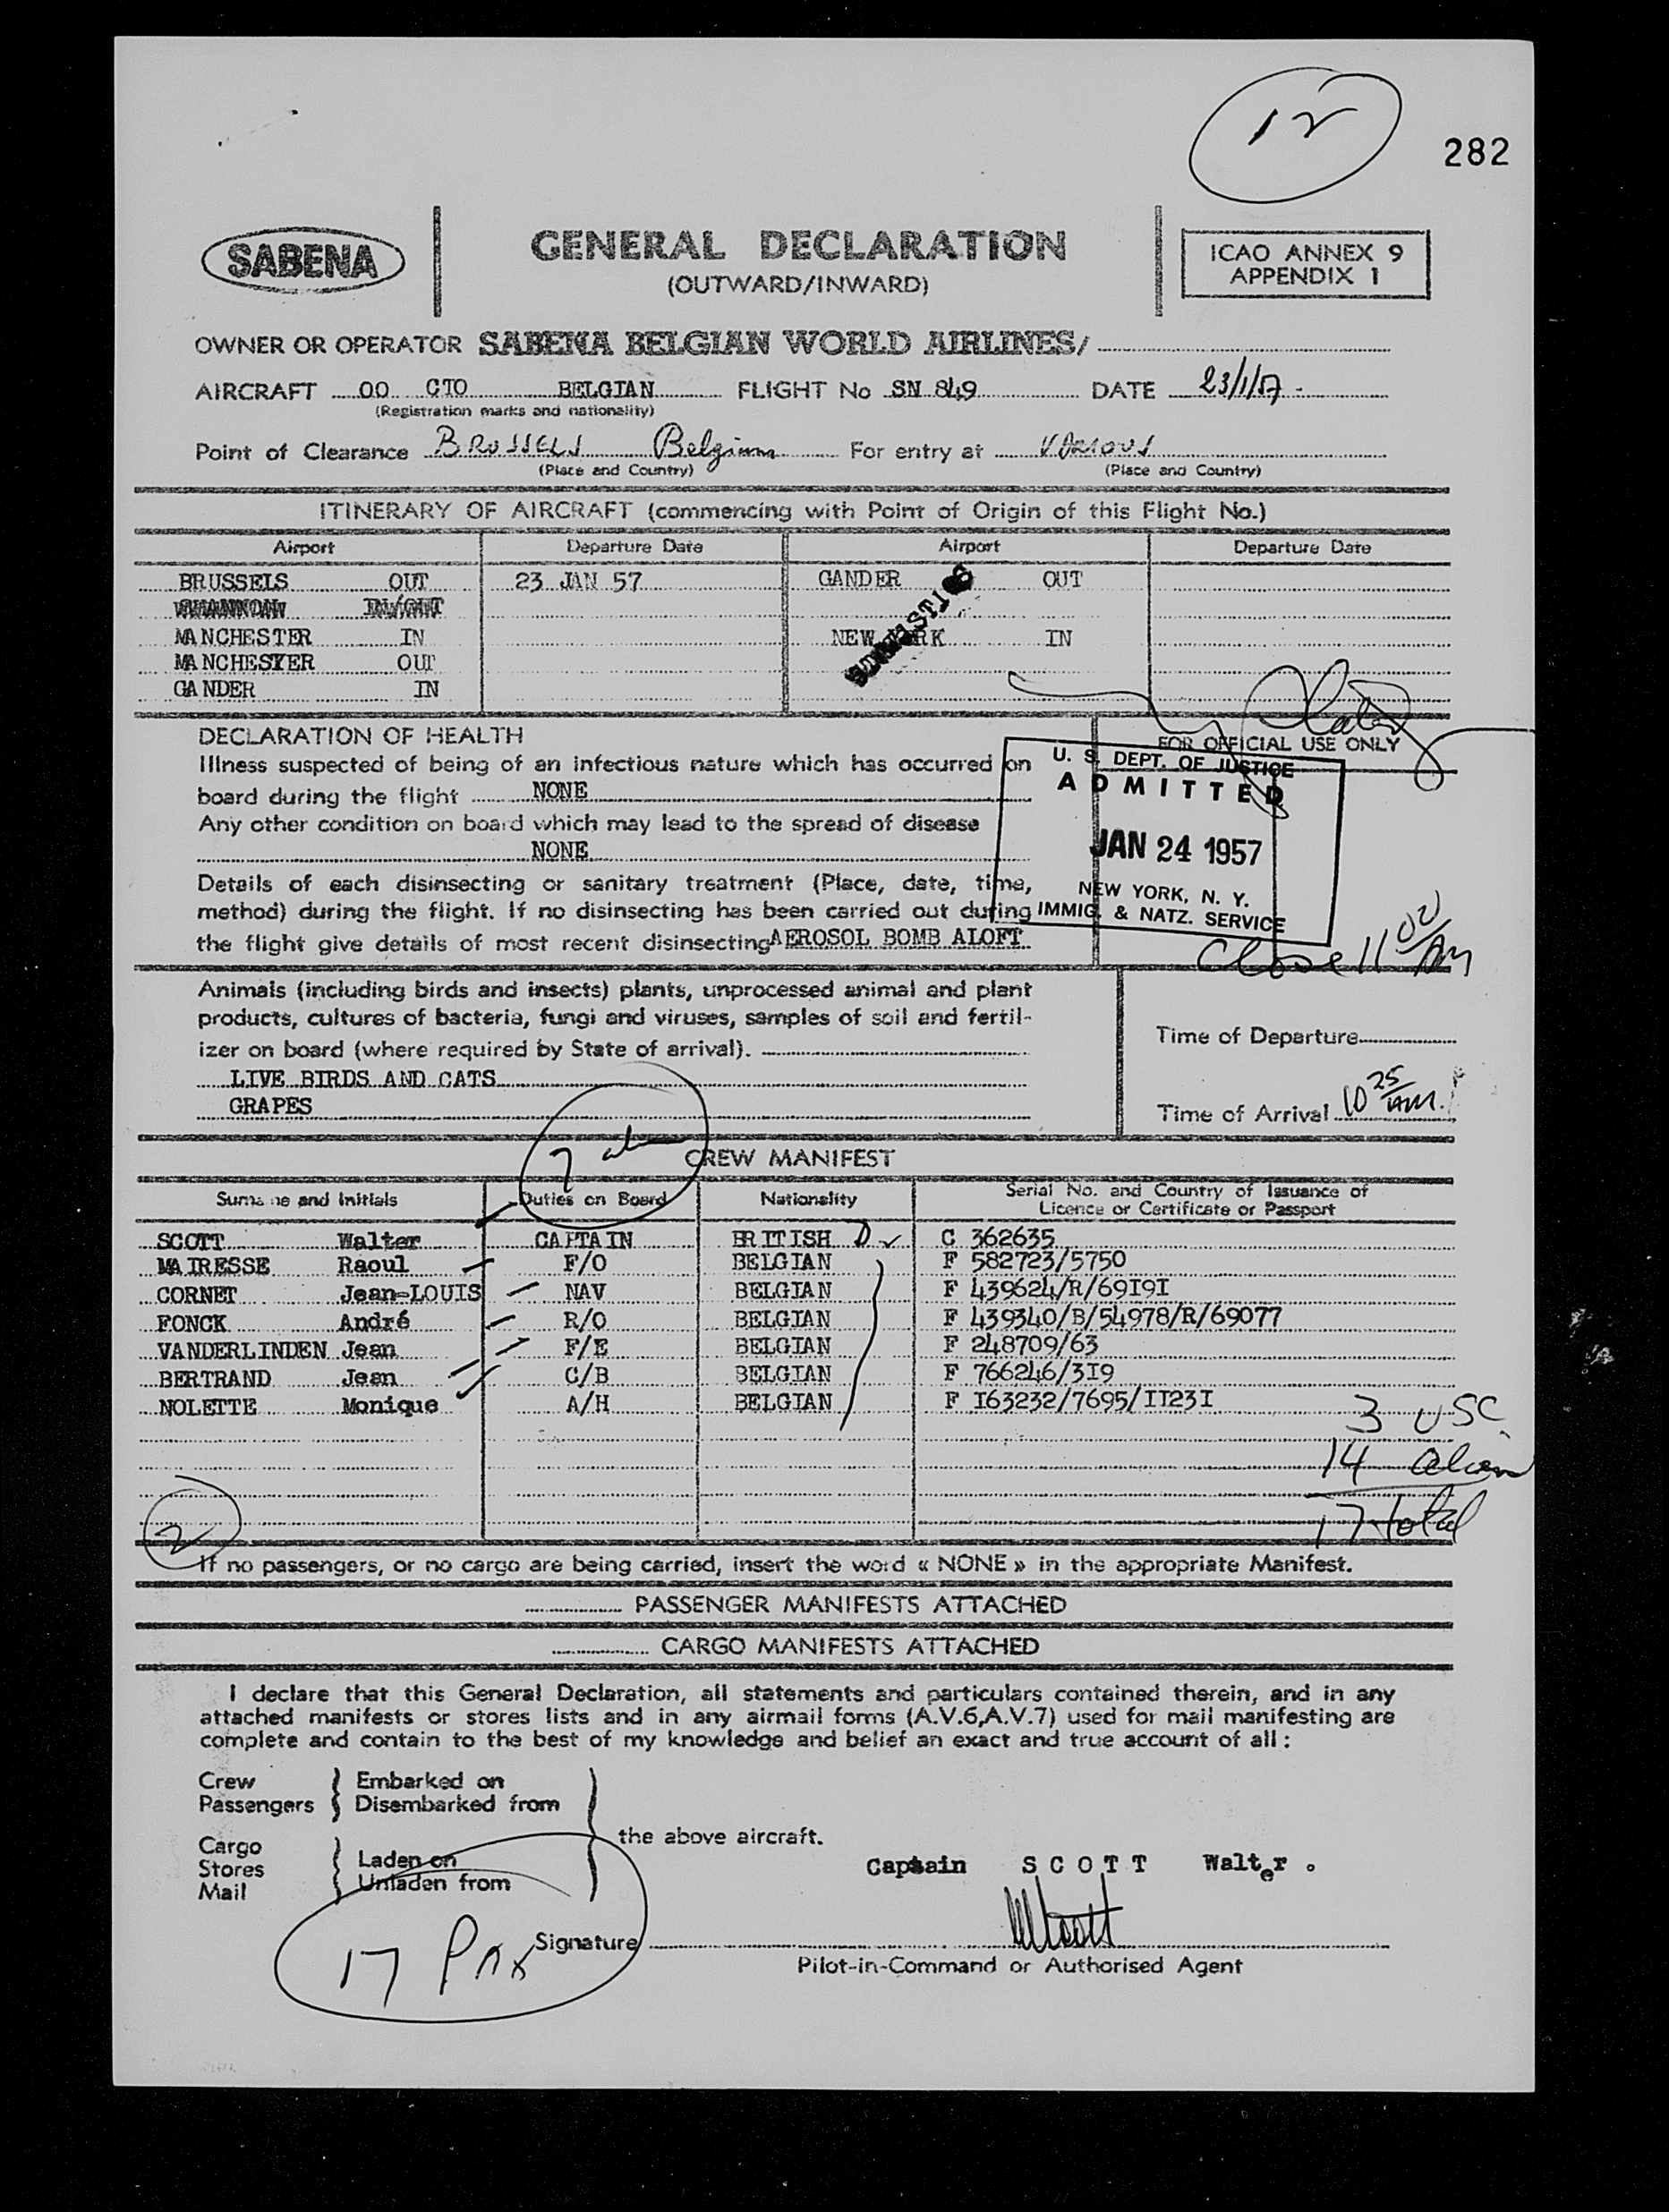 12
282
SABENA
GENERAL DECLARATION
(OUTWARD/INWARD)
ICAO ANNEX 9
APPENDIX 1
OWNER OR OPERATOR SABENA BELGIAN WORLD AIRLINES/
AIRCRAFT OO CTO BELGIAN FLIGHT No SN 849 DATE 23/1/57
(Registration marks and nationality)
Point of Clearance BRUSSELS Belgium For entry at VARIOUS
(Place and Country) (Place and Country)
ITINERARY OF AIRCRAFT (commencing with Point of Origin of this Flight No.)
Airport Departure Date Airport Departure Date
BRUSSELS OUT 23 JAN 57 GANDER OUT
MANCHESTER IN NEW YORK IN
MANCHESTER OUT
GANDER IN
DECLARATION OF HEALTH
FOR OFFICIAL USE ONLY
Illness suspected of being of an infectious nature which has occurred on
board during the flight NONE
Any other condition on board which may lead to the spread of disease
NONE
Details of each disinsecting or sanitary treatment (Place, date, time,
method) during the flight. If no disinsecting has been carried out during
the flight give details of most recent disinsecting AEROSOL BOMB ALOFT
U. S. DEPT. OF JUSTICE
ADMITTED
JAN 24 1957
NEW YORK, N. Y.
IMMIG. & NATZ. SERVICE
Close 11 02 AM
Animals (including birds and insects) plants, unprocessed animal and plant
products, cultures of bacteria, fungi and viruses, samples of soil and fertil-
izer on board (where required by State of arrival).
LIVE BIRDS AND CATS
GRAPES
Time of Departure
Time of Arrival 10 25 AM.
7
CREW MANIFEST
Surname and Initials Duties on Board Nationality Serial No. and Country of Issuance of
Licence or Certificate or Passport
SCOTT Walter CAPTAIN BRITISH D C 362635
MAIRESSE Raoul F/O BELGIAN F 582723/5750
CORNET Jean-LOUIS NAV BELGIAN F 439624/R/69I9I
FONCK André R/O BELGIAN F 439340/B/54978/R/69077
VANDERLINDEN Jean F/E BELGIAN F 248709/63
BERTRAND Jean C/B BELGIAN F 766246/3I9
NOLETTE Monique A/H BELGIAN F I63232/7695/II23I
3 USC
14 alien
17 total
2
If no passengers, or no cargo are being carried, insert the word « NONE » in the appropriate Manifest.
PASSENGER MANIFESTS ATTACHED
CARGO MANIFESTS ATTACHED
I declare that this General Declaration, all statements and particulars contained therein, and in any
attached manifests or stores lists and in any airmail forms (A.V.6,A.V.7) used for mail manifesting are
complete and contain to the best of my knowledge and belief an exact and true account of all :
Crew Embarked on
Passengers Disembarked from
the above aircraft.
Cargo
Stores Laden on
Mail Unladen from
Captain SCOTT Walter .
17 Pax
Signature WScott
Pilot-in-Command or Authorised Agent